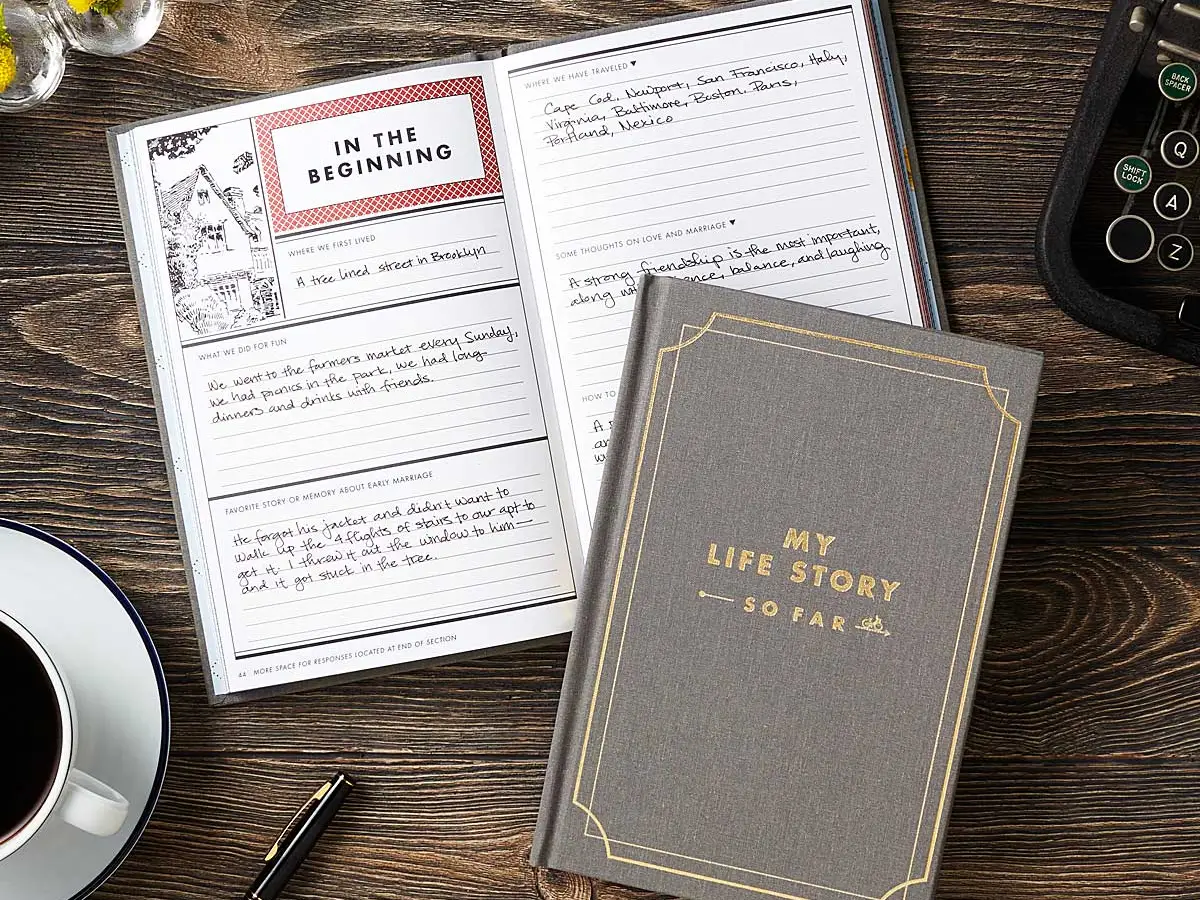 IN THE
BEGINNING
WHERE WE FIRST LIVED
A tree lined street in Brooklyn
WHAT WE DID FOR FUN
We went to the farmers market every Sunday,
we had picnics in the park, we had long
dinners and drinks with friends.
FAVORITE STORY OR MEMORY ABOUT EARLY MARRIAGE
He forgot his jacket and didn't want to
walk up the 4 flights of stairs to our apt to
get it. I threw it out the window to him—
and it got stuck in the tree.
44 MORE SPACE FOR RESPONSES LOCATED AT END OF SECTION
WHERE WE HAVE TRAVELED ▼
Cape Cod, Newport, San Francisco, Italy,
Virginia, Baltimore, Boston, Paris,
Portland, Mexico
SOME THOUGHTS ON LOVE AND MARRIAGE ▼
A strong friendship is the most important,
along balance, and laughing
HOW TO
A
MY
LIFE STORY
SO FAR
BACK
SPACER
Q
SHIFT
LOCK
A
Z